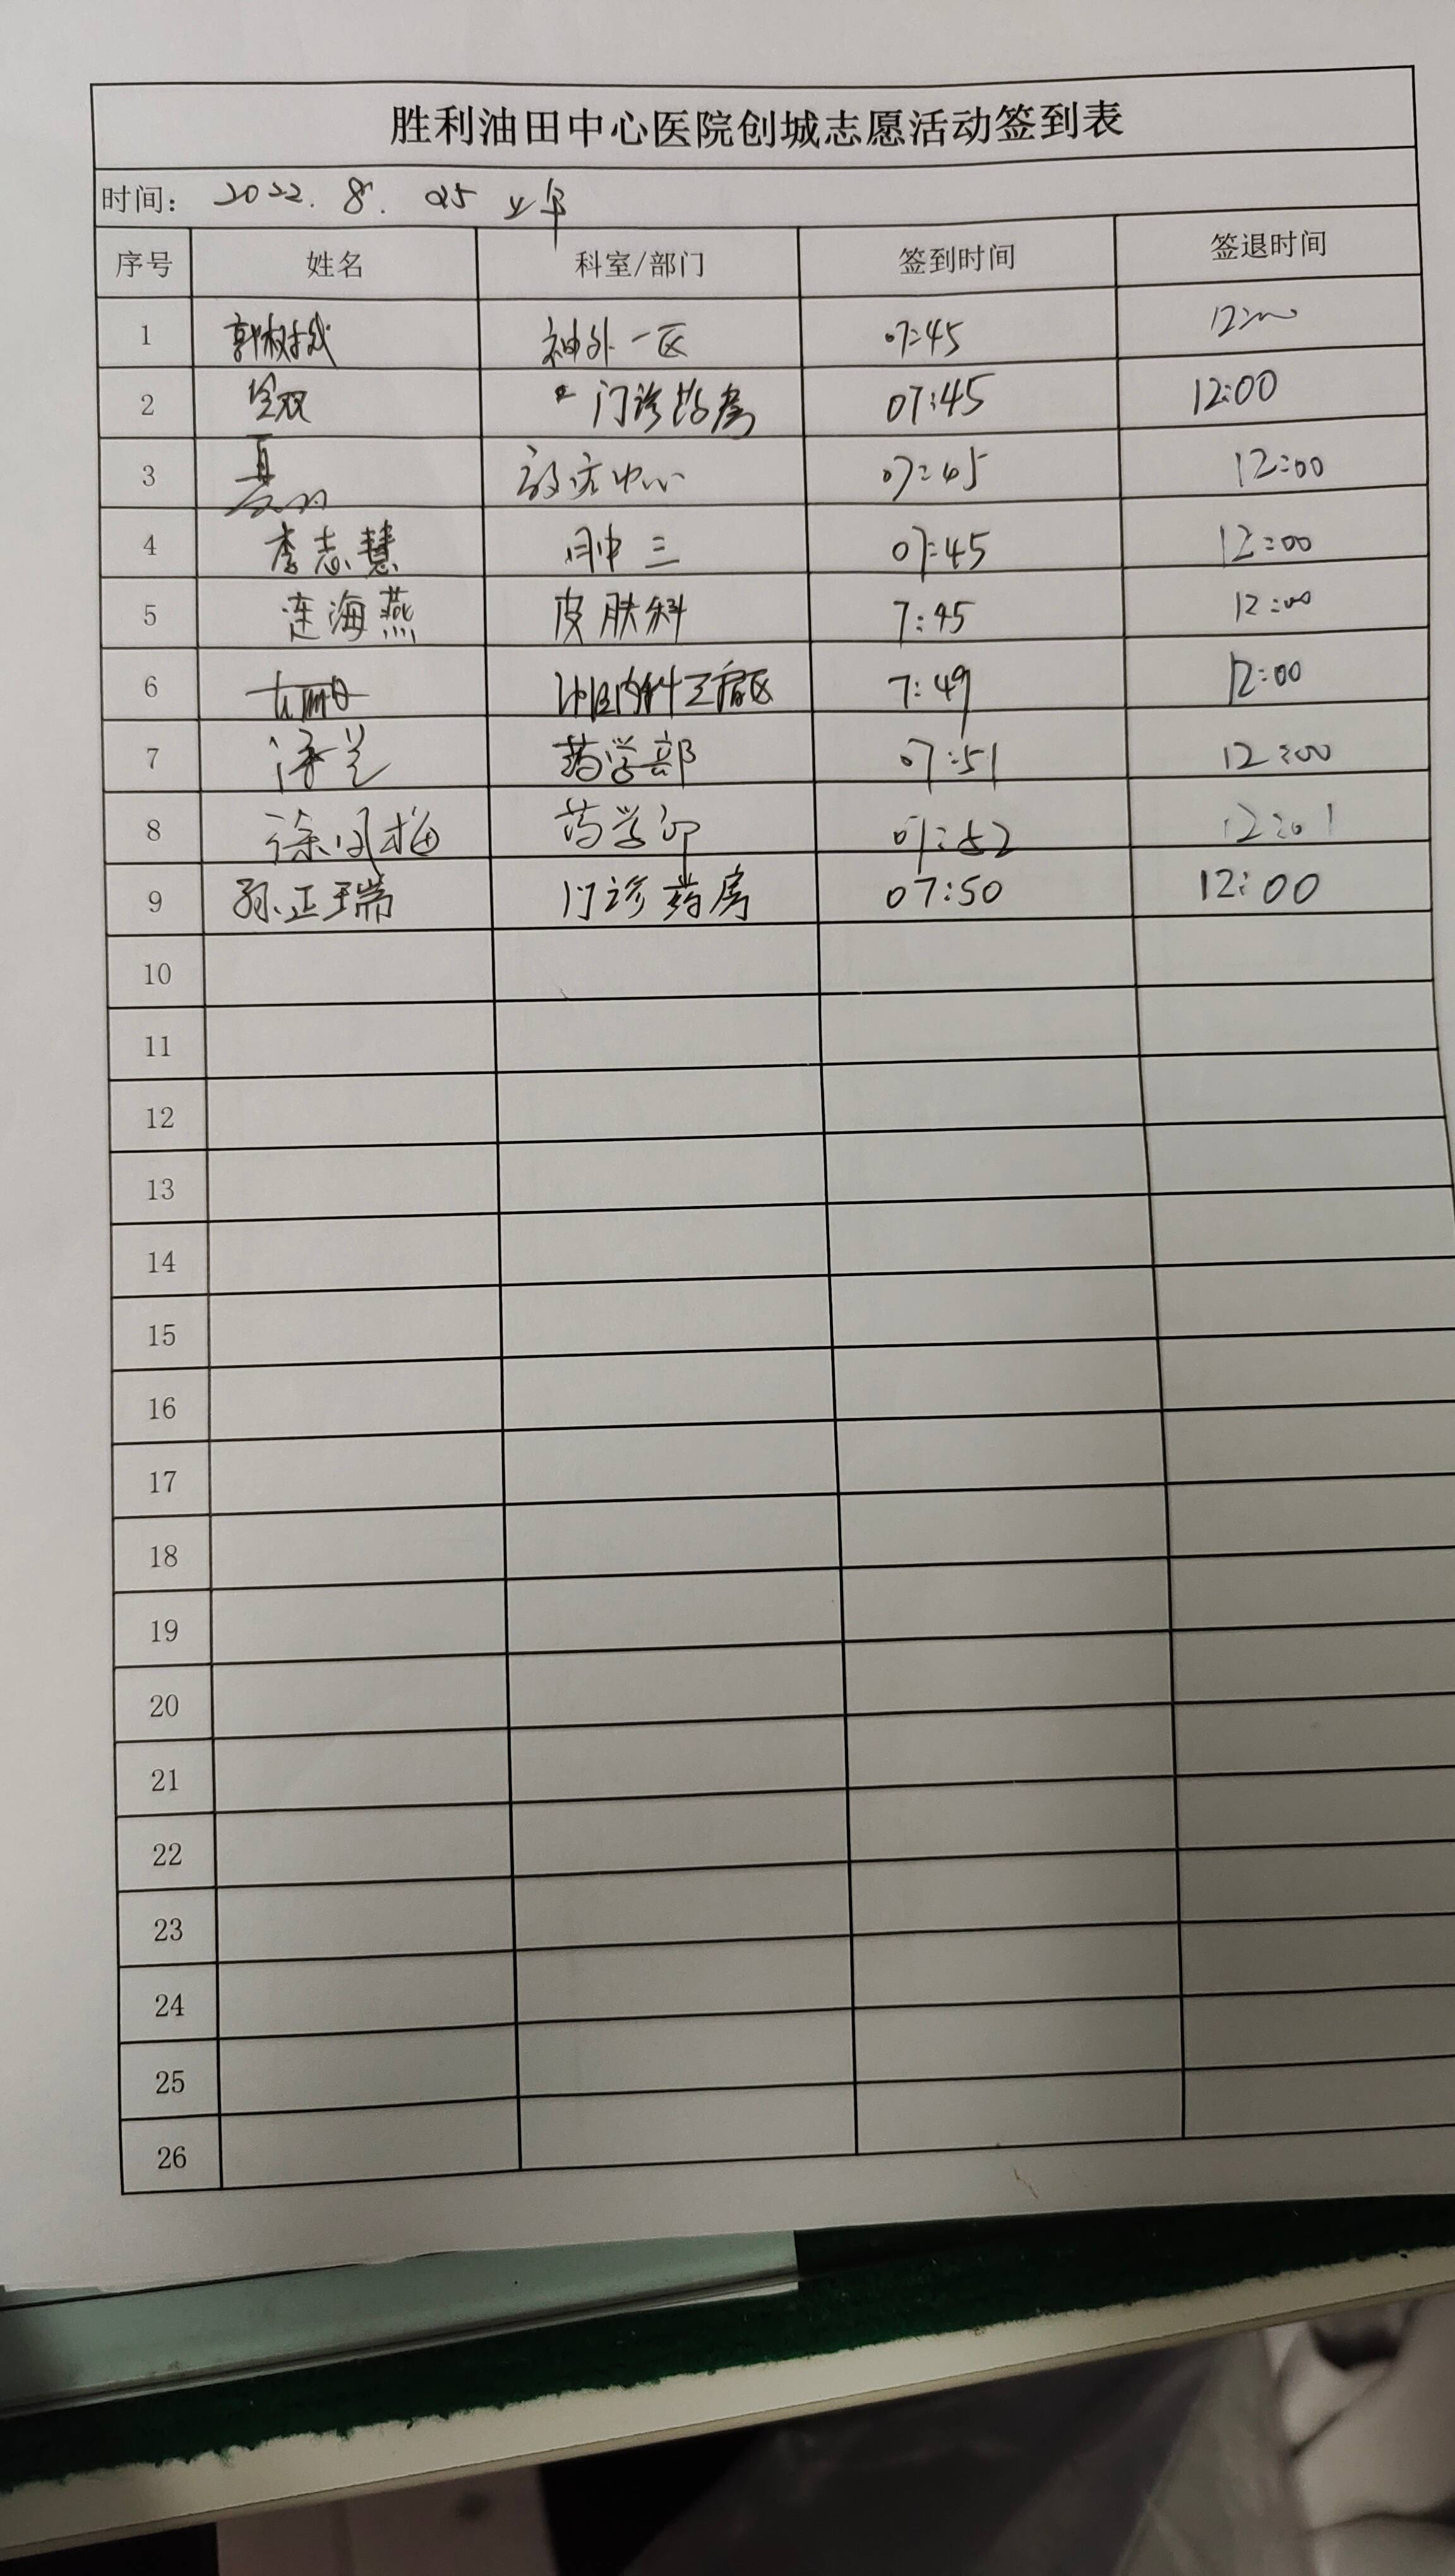 胜利油田中心医院创城志愿活动签到表
时间： 2022. 8. 25 上午
序号 姓名 科室/部门 签到时间 签退时间
1 郭树城 神外一区 07:45 12:00
2 门诊药房 07:45 12:00
3 放疗中心 07:45 12:00
4 李志慧 07:45 12:00
5 连海燕 皮肤科 7:45 12:00
6 神经内科三病区 7:49 12:00
7 药学部 07:51 12:00
8 徐凤梅 药学部 07:52 12:01
9 孙正瑞 门诊药房 07:50 12:00
10
11
12
13
14
15
16
17
18
19
20
21
22
23
24
25
26